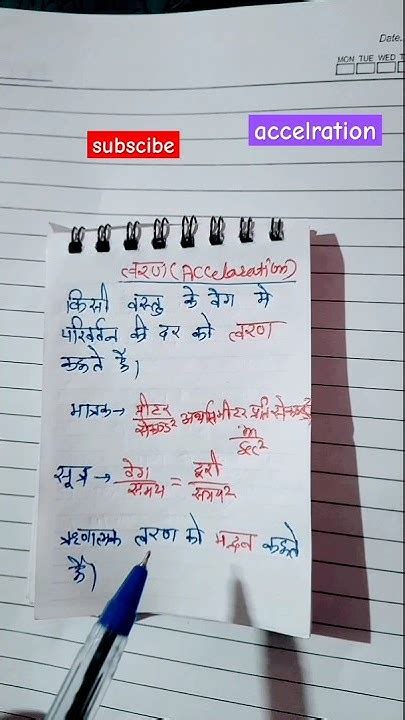 Date.
MON TUE WED T
accelration
subscibe
त्वरण (Accelaration)
किसी वस्तु के वेग मे
परिवर्तन की दर को त्वरण
कहते हैं।
मात्रक→ मीटर/सेकण्ड² अर्थात मीटर प्रति सेकण्ड²
m/sec²
सूत्र → वेग/समय = दूरी/समय²
ऋणात्मक त्वरण को मंदन कहते
हैं।